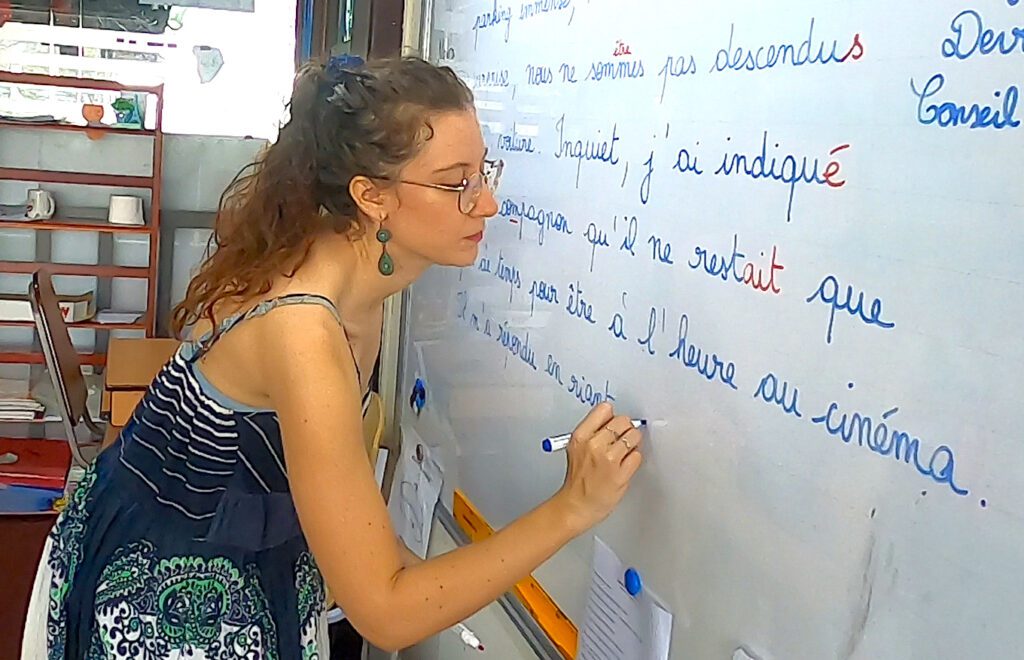 parking immense,
nous ne sommes pas descendus
être
voiture. Inquiet, j'ai indiqué
compagnon qu'il ne restait que
temps pour être à l'heure au cinéma.
Il m'a répondu en riant
Conseil